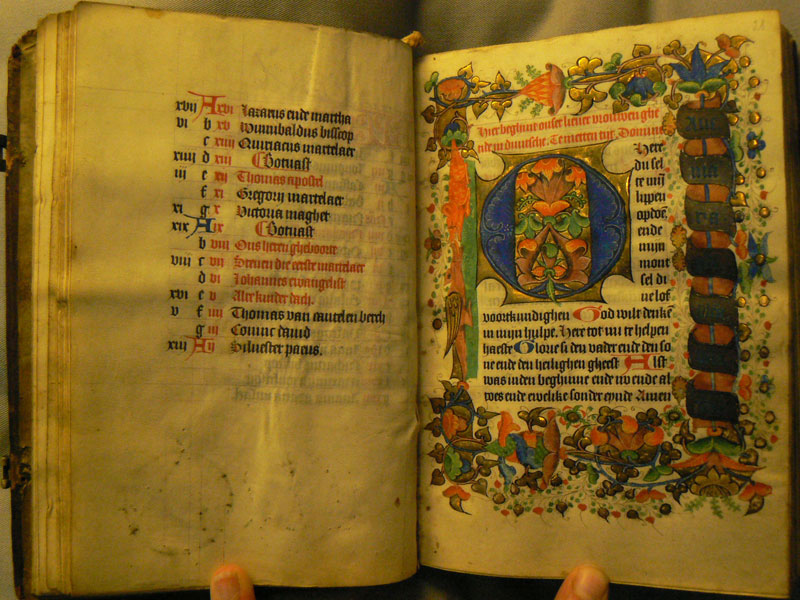 xvii A xvi Lazarus ende martha
vi b xv Winnibaldus bisscop
c xiiii Quiriacus martelaer
xiiii d xiii Botuast
iii e xii Thomas apostel
f xi Gregorij martelaer
xi g x Victoria maghet
xix A ix Botuast
b viii Ons heren gheboort
viii c vii Steuen die eerste martelaer
d vi Johannes ewangelist
xvi e v Alre kinder dach.
v f iiii Thomas van cantelenberch
g iii Coninc dauid
xiii A ij Siluester paeus.
Hier beghint onser lieuer vrouwen ghe
tide in duutsche. Te metten tijt. Domine
Here
du sel
te mijn
lippen
opdoen
ende
mijn
mont
sel di
ne lof
voortkundighen God wilt denken
in mijn hulpe. Here tot mi te helpen
haeste Glorie si den vader ende den so
ne ende den heilighen gheest Alst
was in den beghinne ende nv ende al
wes ende ewelike sonder eynde Amen